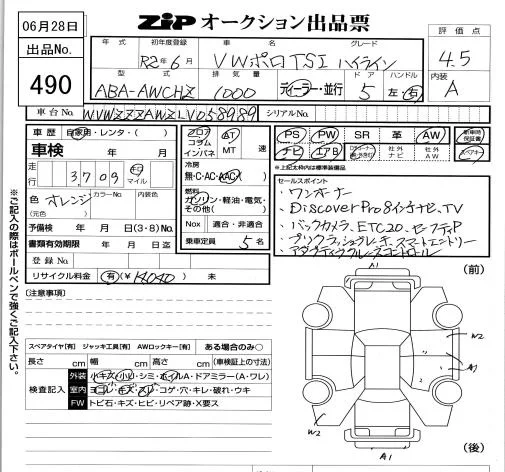 06月28日
ZiP オークション出品票
出品No.
490
評価点
4.5
内装
A
年式 初年度登録 車名 グレード
R2年6月 VWポロTSI ハイライン
型式 排気量 ドア ハンドル
ABA-AWCHZ 1000 ディーラー・並行 5 左・右
車台No. WVWZZZAWZLY058989 シリアルNo.
車歴 自家用・レンタ・( )
車検 年 月 日
走行 3,709 キロ マイル
色 オレンジ カラーNo. 内装色
(元色)
予備検 年 月 日(3・8)No.
書類有効期限 年 月 日迄
登録No.
リサイクル料金 有(¥14040) 未
フロア コラム インパネ
AT MT 速
冷房
無・C・AC・AAC
燃料
ガソリン・軽油・電気・その他( )
Nox 適合・非適合
乗車定員 5名
PS PW SR 革 AW 新車時保証書
ナビ エアB 社外ナビ 社外AW スペアキー
※上記太枠内は標準装備品
セールスポイント
・ワンオーナー
・Discover Pro 8インチナビ、TV
・バックカメラ、ETC2.0、セーフティP
・プリクラッシュブレーキ、スマートエントリー
・アダプティブクルーズコントロール
※ご記入の際はボールペンで強くご記入下さい。
[注意事項]
スペアタイヤ[有] ジャッキ工具[有] AWロックキー[有] ある場合のみ○
長さ cm 幅 cm 高さ cm (車検証上の寸法)
検査記入
外装 小キズ・小凹・シミ・ホイルA・ドアミラー(A・ワレ)
室内 ヨゴレ・キズ・スレ・コゲ・穴・キレ・破れ・ウキ
FW トビ石・キズ・ヒビ・リペア跡・X要ス
(前)
A1
W2
A1
W2
A1
(後)